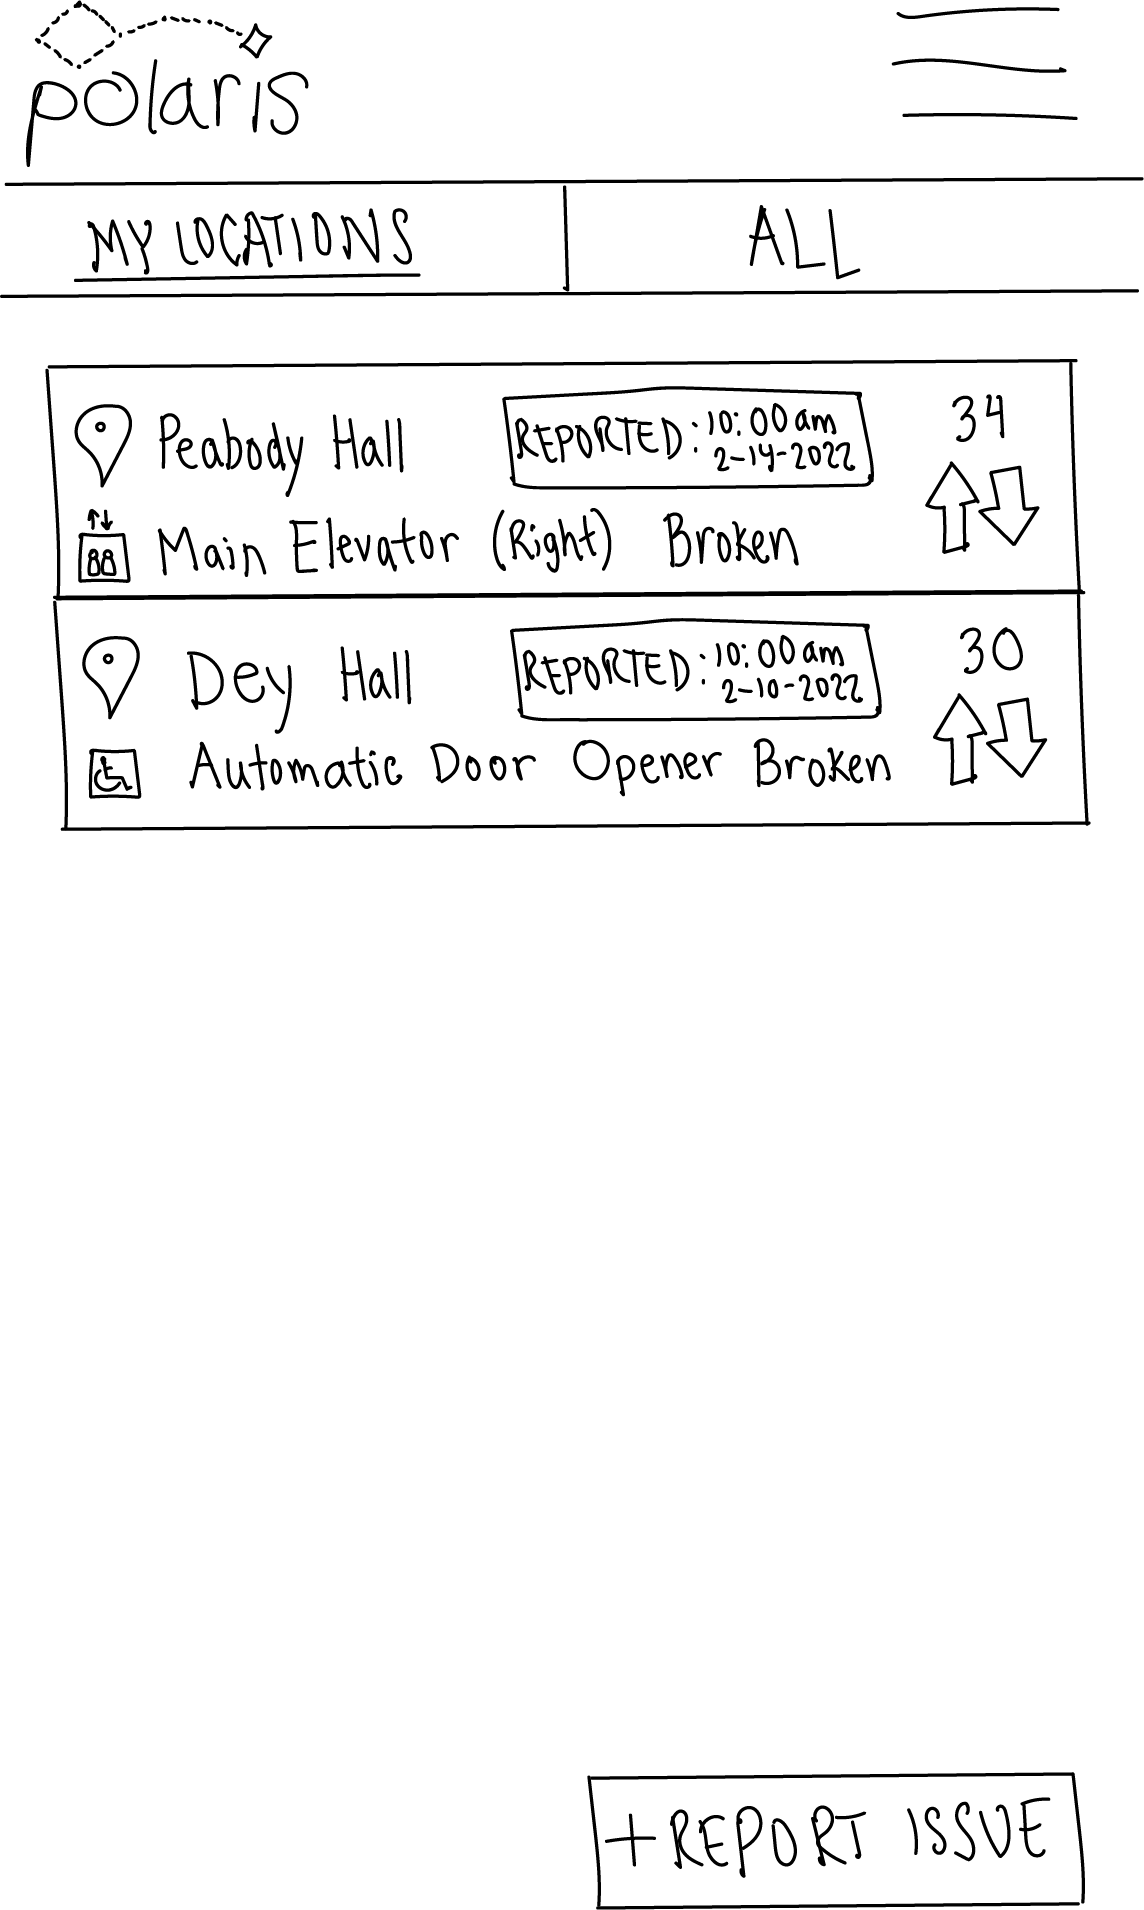 polaris
MY LOCATIONS
ALL
Peabody Hall
REPORTED: 10:00 am
2-14-2022
34
Main Elevator (Right) Broken
Dey Hall
REPORTED: 10:00 am
2-10-2022
30
Automatic Door Opener Broken
+REPORT ISSUE